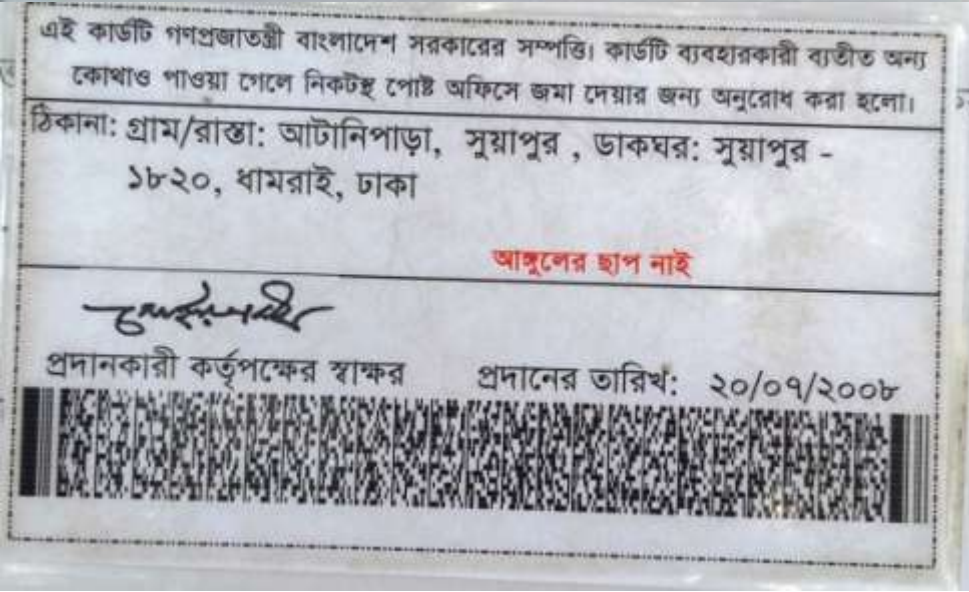 এই কার্ডটি গণপ্রজাতন্ত্রী বাংলাদেশ সরকারের সম্পত্তি। কার্ডটি ব্যবহারকারী ব্যতীত অন্য
কোথাও পাওয়া গেলে নিকটস্থ পোষ্ট অফিসে জমা দেয়ার জন্য অনুরোধ করা হলো।
ঠিকানা: গ্রাম/রাস্তা: আটানিপাড়া, সুয়াপুর , ডাকঘর: সুয়াপুর -
১৮২০, ধামরাই, ঢাকা
আঙ্গুলের ছাপ নাই
প্রদানকারী কর্তৃপক্ষের স্বাক্ষর প্রদানের তারিখ: ২০/০৭/২০০৮